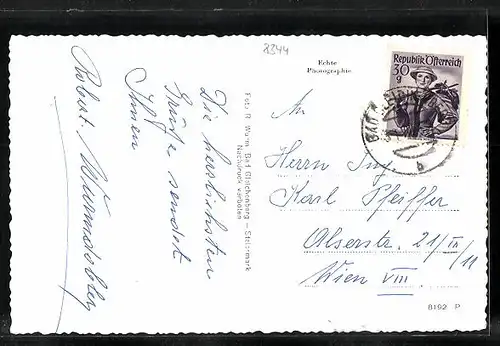 8344
Echte
Photographie
Republik Österreich
30
g
BAD
Die herzlichsten
Grüße sendet
Ihnen
Robert
Foto R. Wurm, Bad Gleichenberg – Steiermark
Nachdruck verboten
An
Herrn Ing.
Karl Pfeiffer
Alserstr. 21/III
/11
Wien VIII
8192 P